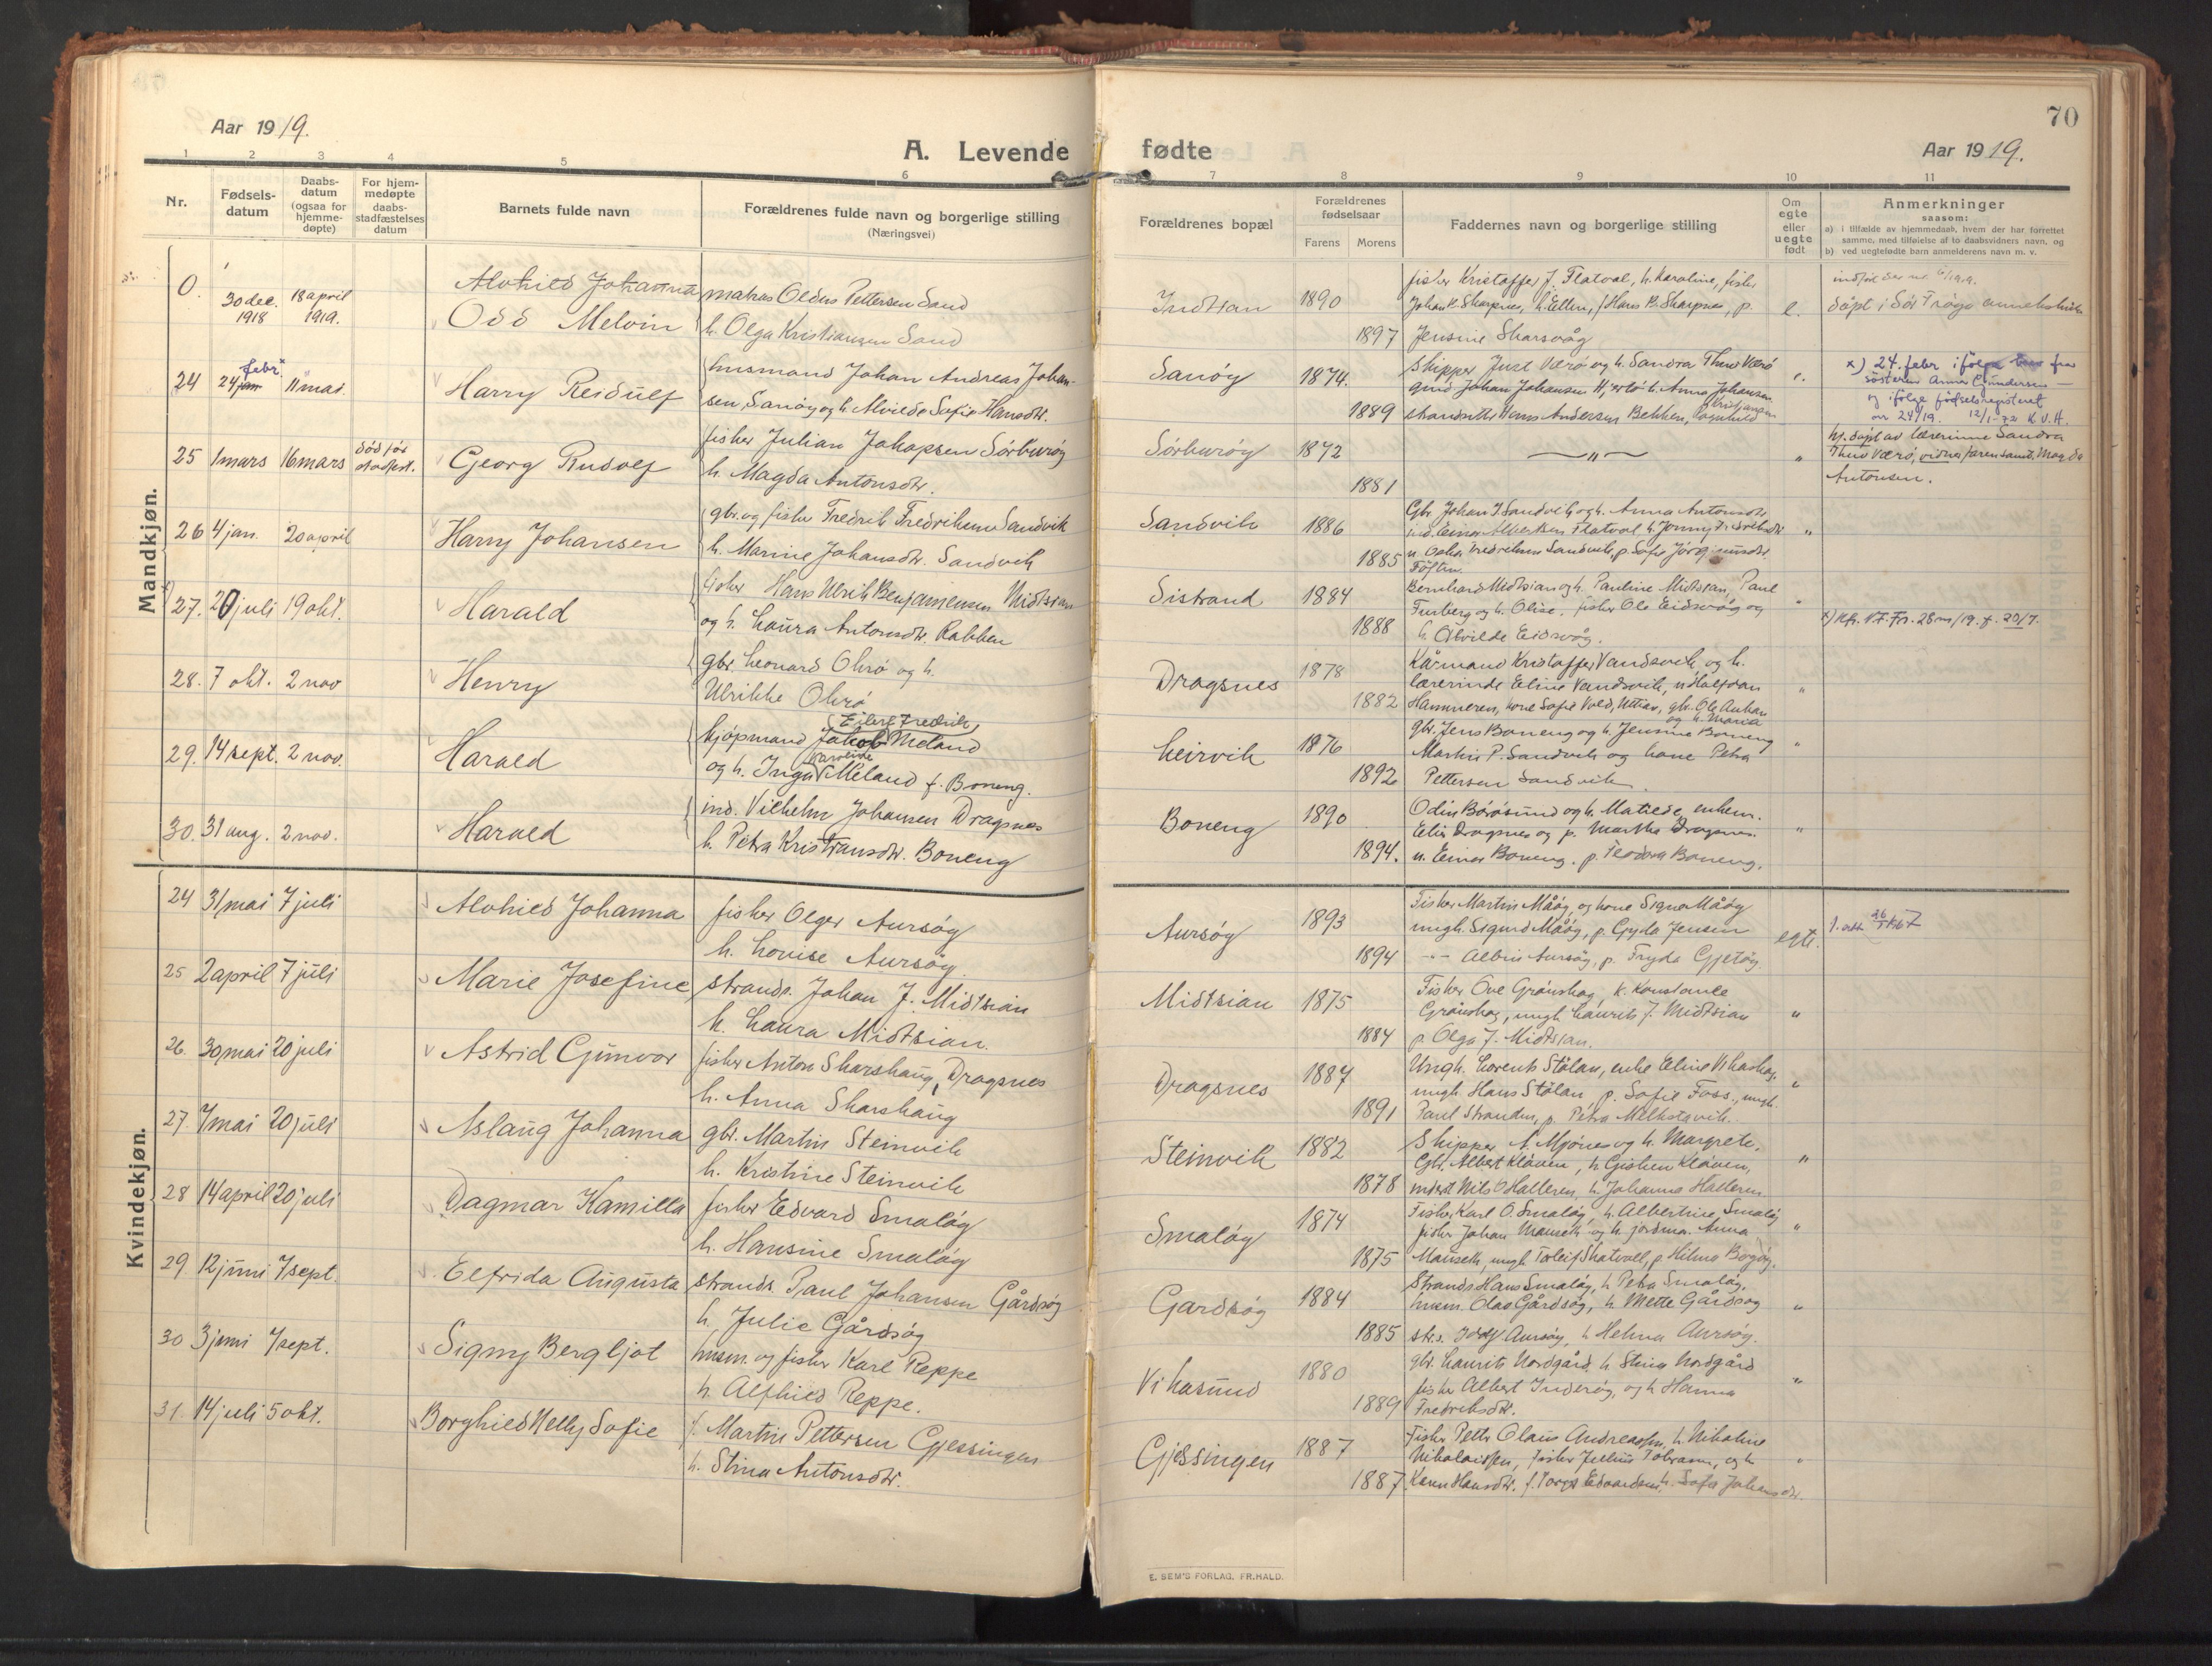 Aar 1919.
A. Levende
1 2 3 4 5 6
Nr.
Fødsels-
datum
Daabs-
datum
(ogsaa for
hjemme-
døpte)
For hjem-
medøpte
daabs-
stadfæstelses
datum
Barnets fulde navn
Forældrenes fulde navn og borgerlige stilling
(Næringsvei)
Mandkjøn.
0.
30 dec. 18 april
1918 1919.
Alvhild Johanna
Odd Melvin
matros Oldus Pettersen Sand
h. Olga Kristiansen Sand
24 24 jan febr. x 11 mai. Harry Reidulf
husmand Johan Andreas Johan-
sen, Sanøy og h. Alvilde Sofie Hansdtr.
25 1 mars 16 mars død før
stadfest. Georg Rudolf
fisker Julian Johansen Sørburøy
h. Magda Antonsdtr.
26 4 jan. 20 april Harry Johansen
gbr. og fisker Fredrik Fredriksen Sandvik
h. Marine Johansdtr. Sandvik
27. 20 juli 19 okt. Harald
fisker Hans Ulrik Benjaminsen Midtsian
og h. Laura Antonsdtr. Rabben
28. 7 okt. 2 nov Henry
gbr. Leonard Okrø og h.
Ulrikke Okrø
29. 14 sept. 2 nov. Harald
Eilert Fredrik
kjøpmand Jakob Meland
Karoline
og h. Inga Meland f. Boneng.
30. 31 aug. 2 nov. Harald
ind. Vilhelm Johansen Dragsnes
h. Petra Kristiansdtr. Boneng
Kvindekjøn.
24 31 mai 7 juli Alvhild Johanna
fisker Olger Aursøy
h. Lovise Aursøy.
25 2 april 7 juli Marie Josefine
strands. Johan J. Midtsian
h. Laura Midtsian.
26. 30 mai 20 juli Astrid Gunvor
fisker Anton Skarshaug, Dragsnes
h. Anna Skarshaug
27. 7 mai 20 juli Aslaug Johanna
gbr. Martin Steinvik
h. Kristine Steinvik
28 14 april 20 juli Dagmar Kamilla
fisker Edvard Smaløy
h. Hansine Smaløy
29 12 juni 7 sept. Elfrida Augusta
strands. Paul Johansen Gårdsøy
h. Julie Gårdsøy
30 3 juni 7 sept. Signy Bergljot
husm. og fisker Karl Reppe
h. Alfhild Reppe.
31. 14 juli 5 okt. Borghild Nelly Sofie
f. Martin Pettersen Gjessingen
h. Stina Antonsdtr.
70
fødte
Aar 1919.
7 8 9 10 11
Forældrenes bopæl
Forældrenes
fødselsaar
Farens Morens
Faddernes navn og borgerlige stilling
Om
egte
eller
uegte
født
Anmerkninger
saasom:
a) i tilfælde av hjemmedaab, hvem der har forrettet
samme, med tilføielse af to daabsvidners navn, og
b) ved uegtefødte barn anmelderens navn m. v.
1890
1897
fisker Kristoffer J. Flatval, h. Karoline, fisker
Johan K. Skarpnes, h. Ellen, Hans B. Skarpnes, p.
Jensine Skarsvåg
e.
døpt i Sør Frøya annekskirke
Sanøy 1874.
1889
Skipper Just Værø og h. Sandra Thue Værø
gmd. Johan Johansen, h. Anna Johansen
Hans Andersen Bekken, Ragnhild Kristiansen
e.
x) 24. febr ifølge fra
søsteren Anna Gundersen —
og ifølge fødselsregisteret
nr 24/19. 12/1-72 K.V.H.
Sørburøy 1872
1881
— " —
"
hj. døpt av lærerinne Sandra
Thue Værø, vidner faren samt Magda
Antonsen.
Sandvik 1886
1885
Gbr. Johan J. Sandvik og h. Anna Antonsdtr.
ind. Einar Albertsen Flatval, h. Jenny Fredriksdtr
u. Oskar Fredriksen Sandvik, p. Sofie Jørginusdtr.
"
Sistrand 1884
1888
Bernhard Midtsian og h. Pauline Midtsian, Paul
Furberg og h. Olise. fisker Ole Eidsvåg og
h. Alvilde Eidsvåg.
"
x) Kfr. 28 /19. f. 20/7.
Dragsnes 1878
1882
Kårmand Kristoffer Vandsvik og h.
lærerinde Eline Vandsvik, u. Halfdan
Hammeren, kone Sofie Vold, Uttian, gbr. Ole
og h. Maria
"
Leirvik 1876
1892
gbr. Jens Boneng og h. Jensine Boneng
Martin P. Sandvik og kone Petra
Pettersen Sandvik
"
Boneng 1890
1894.
Odin Børøsund og h. Matilde, enkem.
Elis Dragsnes og p. Martha Dragsnes.
u. Einar Boneng. p. Teodora Boneng.
"
Aursøy 1893
1894
Fisker Martin Måøy og kone Signe Måøy
ungk. Sigurd Måøy, p. Gyda Jensen
-"- Albin Aursøy, p. Fryda Gjetøy
egte.
Midtsian 1875
1884
Fisker Ove Grønskag, h. Konstanse
Grønskag, ungk. Laurits J. Midtsian
p. Olga J. Midtsian.
"
Dragsnes 1887
1891
Ungk. Lorents Stølan, enke Eline Vikaskag.
ungk. Hans Stølan, p. Sofie Foss, ungk.
Paul Stranden, p. Petra Melkstavik.
"
Steinvik 1882
1878
Skipper A. Mjønes og h. Margrete,
Gbr. Albert Kløven, h. Gisken Kløven,
Nils O Hallaren, h. Johanna Hallaren.
"
Smaløy 1874
1875
Fisker Karl O. Smaløy, h. Albertine Smaløy
fisker Johan Mauseth og h. jordm. Anna
Mauseth, ungk. Toleif Skatvall, p. Hilma Borgøy.
"
Gardsøy 1884
1885
Strands Hans Smaløy, h. Petra Smaløy.
husm. Olaf Gårdsøy, h. Mette Gårdsøy
str.s. Aursøy, h. Helma Aursøy.
"
Vikasund 1880
1889
gbr. Laurits Nordgård, h. Stina Nordgård
fisker Albert Inderøy, og h. Hanna
Fredriksdtr.
"
Gjessingen 1887
1887
Fisker Petter Olaus Andreassen, h. Nikoline
Nikolaisen, fisker Julius og h.
Karen Hansdtr. f. Edvardsen, h. Sofie Johansdtr.
"
E. SEM'S FORLAG, FR.HALD.